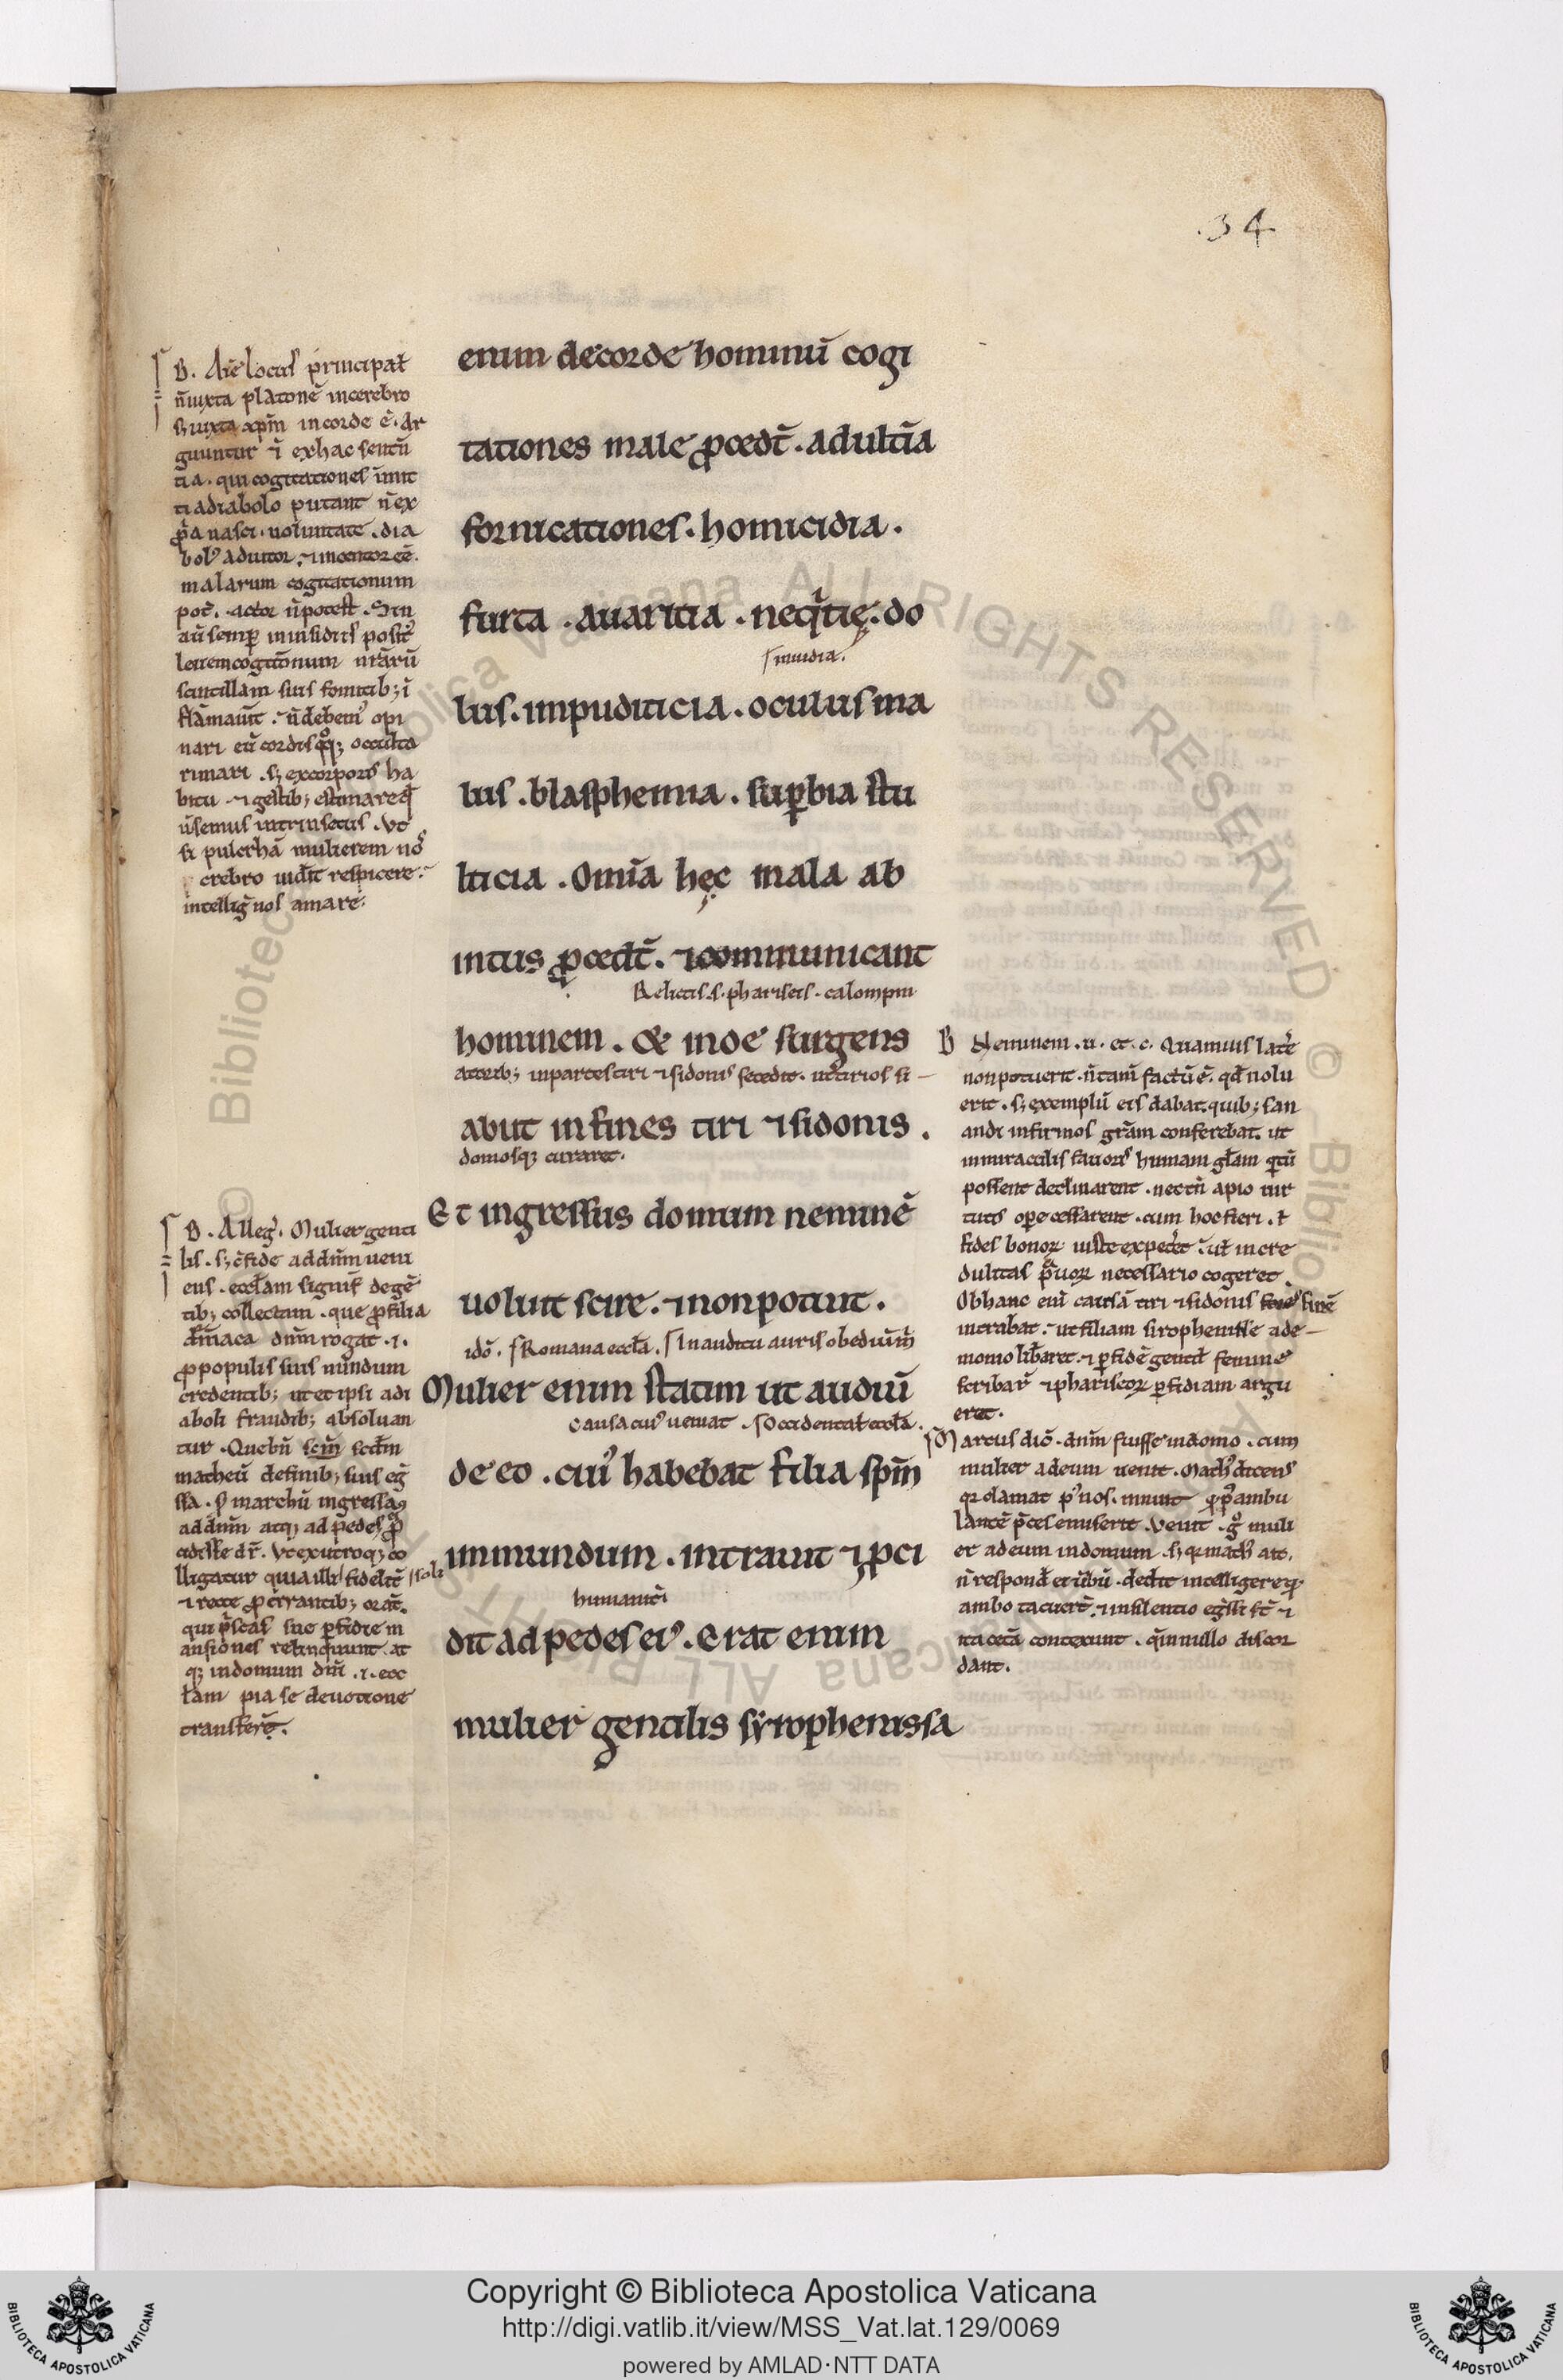 .34
enim de corde hominū cogi
tationes male ꝓcedt̄. adult̄ia
fornicationes. homicidia.
furta. auaricia. neq̄tię. do
inuidia.
lus. impuditicia. oculus ma
lus. blasphemia. suꝑbia stu
lticia. Omīa hęc mala ab
intus ꝓcedt̄. ⁊ communicant
Relictis .s. phariseis. calompni
hominem. & inde surgens
atorib; in partes tiri ⁊ sidonis secedit. ut tirios si
abiit in fines tiri ⁊ sidonis.
domosq; curaret.
Et ingressus domum neminē
uoluit scire. ⁊ non potuit.
idō. Romana eccła. In auditu auris obediuit m̄
Mulier enim statim ut audiuī
causa cui' ueniat. Occidental' eccła.
de eo. cui' habebat filia spm̄
immundum. intrauit ⁊ ꝓci
humanit̄
dit ad pedes ei'. Erat enim
mulier gentilis syrophenissa
B. Aīe locus principał
n̄ iuxta platonē in cerebro
s; iuxta xp̄m in corde ē. Ar
guuntur ī ex hac sentn̄
tia. qui cogitationes īmit
ti a diabolo putant n̄ ex
ꝓ̄a nasci uoluntate. dia
bol' adiutor. ⁊ incentor eē.
malarum cogitationum
pot̄. actor n̄ potest. Sin
aū semꝑ in insidiis posit'
leuem cogitōnum nr̄arū
scintillam suis fomitib; ī
flāmauīt. n̄ debem' opi
nari eū cordis q̊q; occulta
rimari. s; ex corporis ha
bitu ⁊ gestib; estimare q̄
u̅semus intrinsecus. Vt
si pulcrhā mulierem nos
crebro uid̄it respicere.
intelliḡ nos amare.
B. Alleḡ. Mulier genti
lis. s; c̄ fide ad dn̄m ueni
ens. eccłam signif̄ de gē
tib; collectam. que ꝓ filia
dm̄niaca dnm̄ rogat .i.
ꝓ populis suis nundum
credentib; ut et ipsi adi
aboli fraudib; absoluan
tur. Que bn̄ scm̄ scdm
matheū de finib; suis eg̅
ssa. s' marchū ingressa
ad dn̄m atq; ad pedes ꝓ
cidisse dr̄. Vt ex utroq; co
lligatur quia illi fidelit̄ soli
⁊ recte ꝓ errantib; orāt.
qui p̄scas sue ꝑfidie m
ansiones relinquunt. at
q; in domum dm̄ .i. ecc
łam pia se deuotione
transferē.
B Neminem. u. et. c. Quamuis lat̄e
non potuerit. n̄ tam̄ factū ē. qd̄ nolu
erit. s; exemplū eis dabat. quib; san
andi infirmos grām conferebat. ut
in miraculis fauoris humani głam q̄ntū
possent declinarent. nec tn̄ a pio uir
tutis oꝑe cessarent. cum hoc fieri. ł
fides bonoꝝ iuste expet̄et. uł incre
dulitas p̄uoꝝ necessario cogeret.
Ob hanc eni causā tiri ⁊ sidonis finē
intrabat. ut filiam sirophenisse a de
monio lib̄aret. ⁊ ꝑ fidē gentił femine
scribar̄ ⁊ phariseoꝝ ꝑfidiam argu
eret.
Marcus dic̄. dnm̄ fuisse in domo. cum
mulier ad eum uenit. Math' dicens
q; clamat p' nos. innuit ꝙ p' ambu
lantē p̄ces emiserit. Venit. g̊ muli
er ad eum in domum. s; q; math' ait.
n̄ respond̄ ei ūbū. dedit intelligere ꝙ
ambo tacuer̄t. ⁊ in silentio eg̅ssi st̄ ⁊
ita cetā contexunt. q̄ in nullo discor
dant.
Copyright © Biblioteca Apostolica Vaticana
http://digi.vatlib.it/view/MSS_Vat.lat.129/0069
powered by AMLAD·NTT DATA